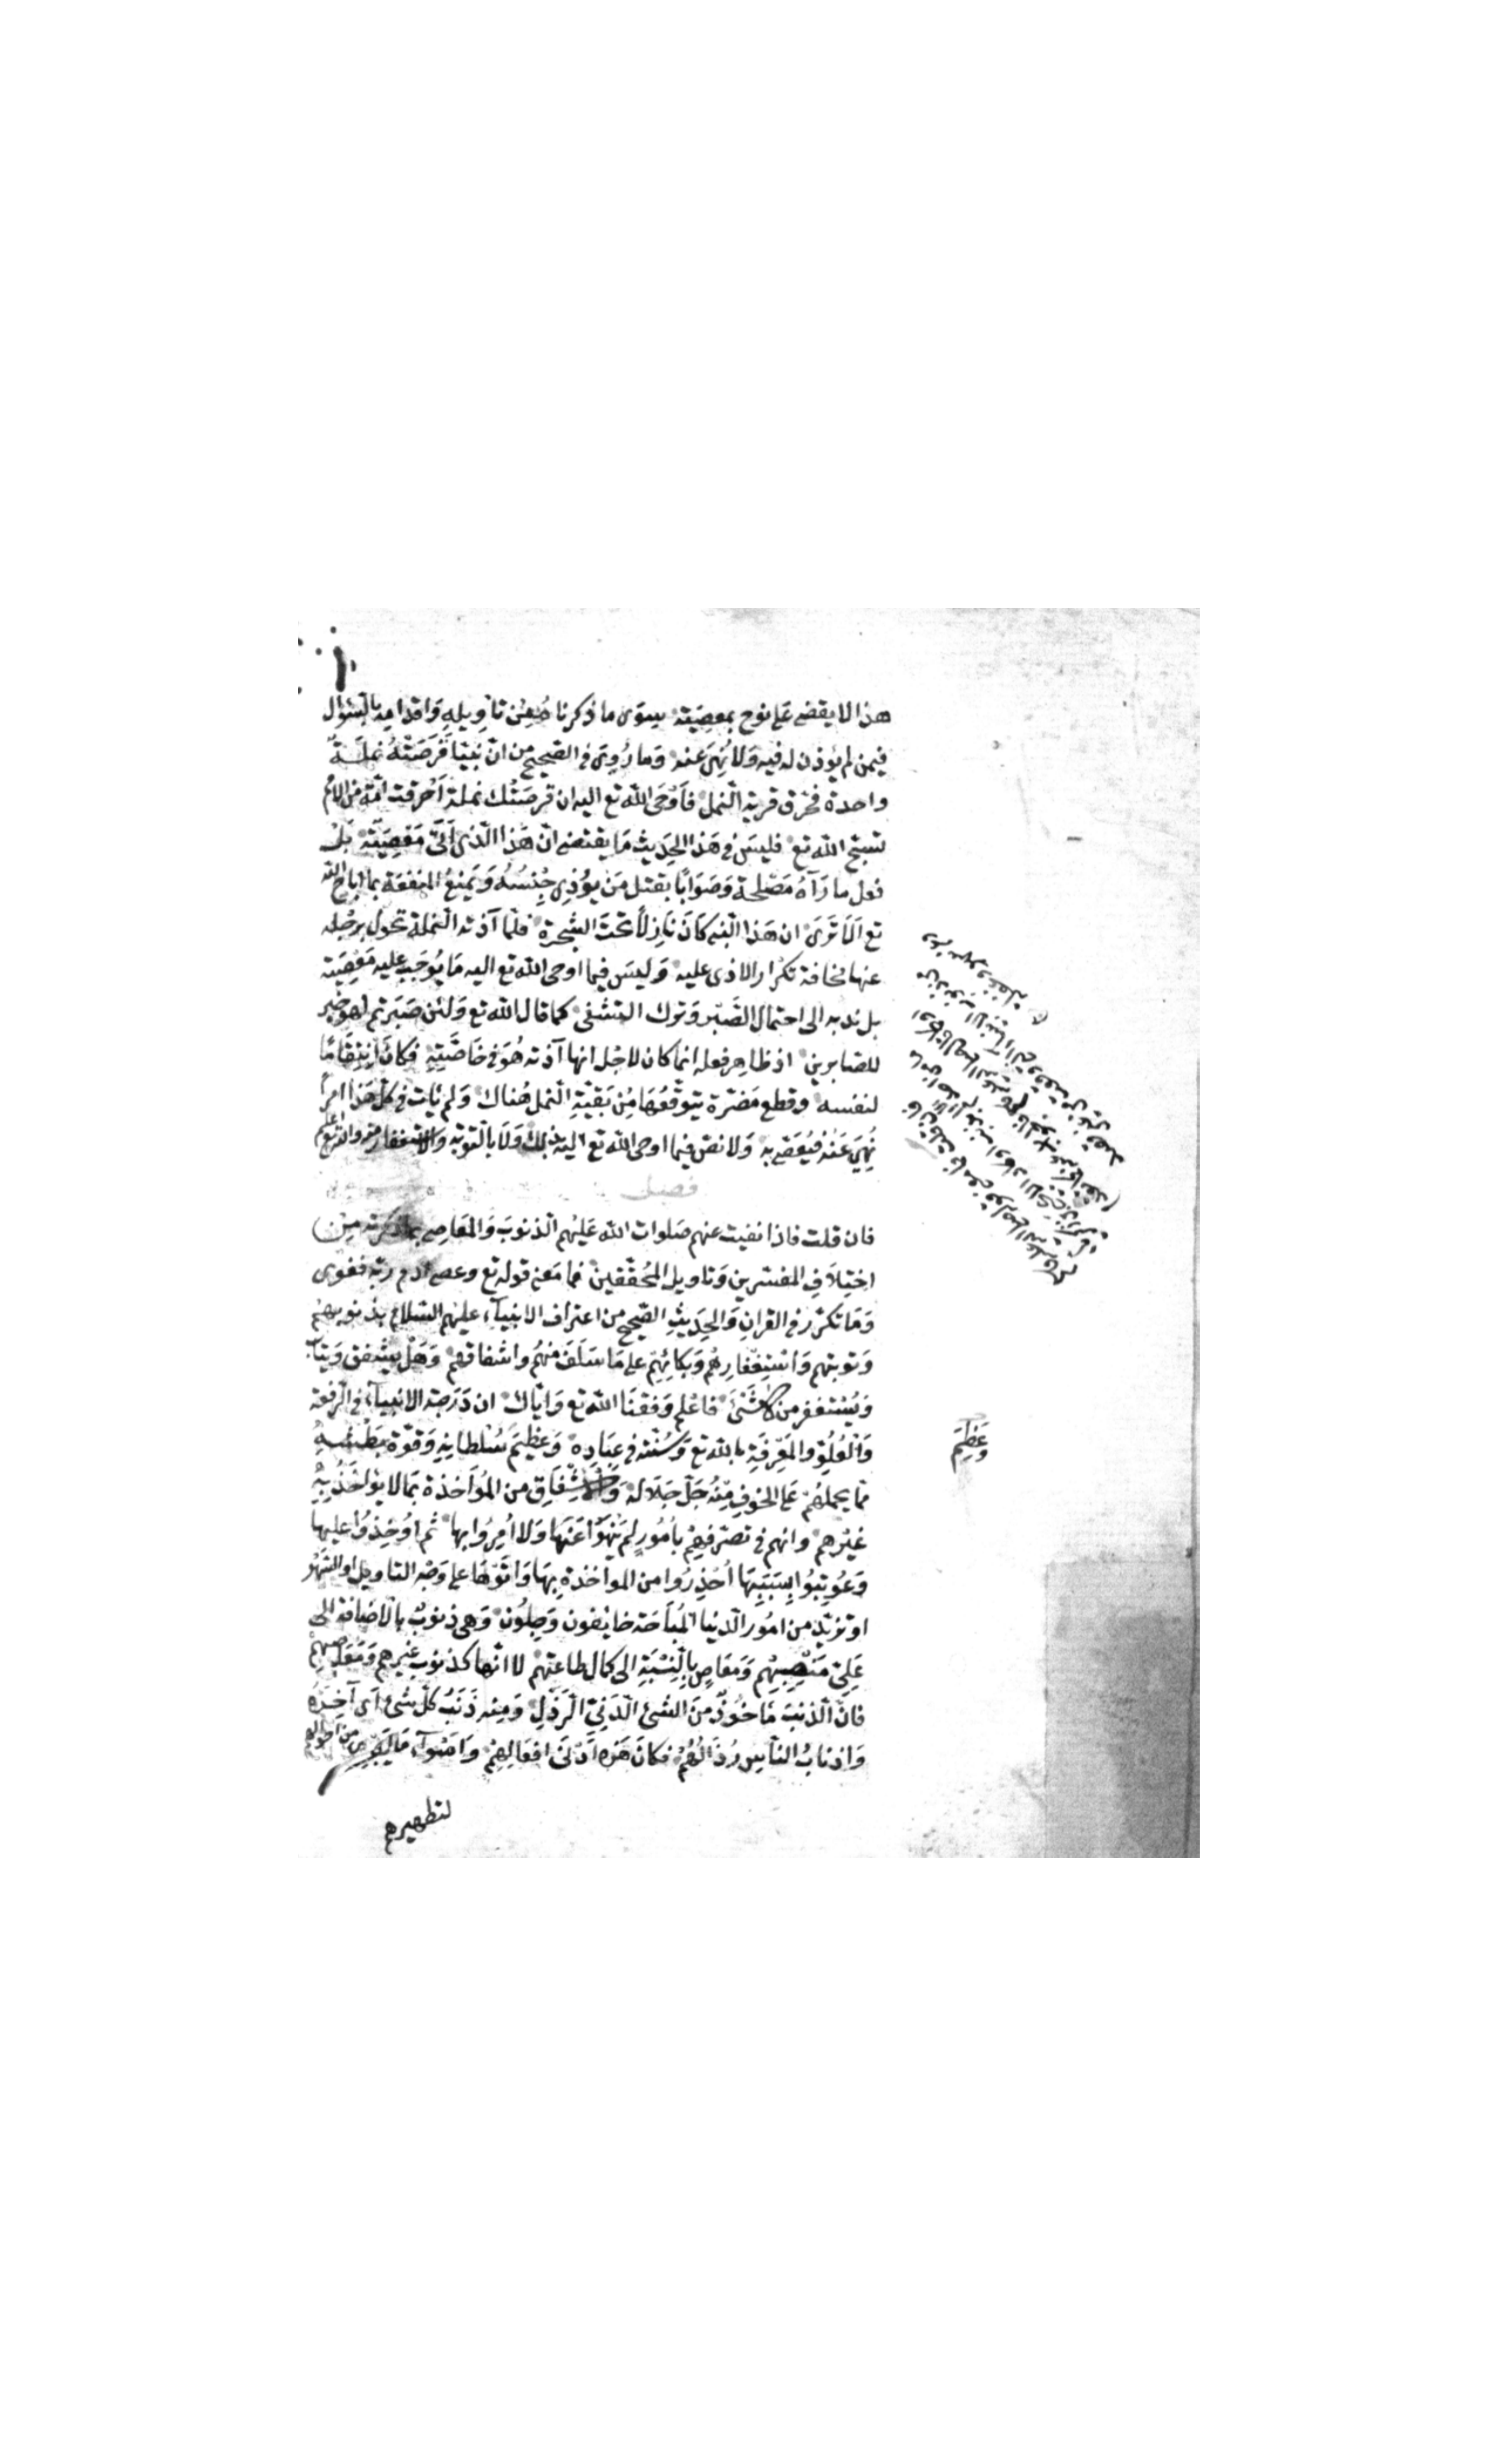 هذا لا يقضى على نوح بمعصية سوى ما ذكرناه من تأويله واقدامه بالسؤال
فيمن لم يؤذن له فيه ولا نهى عنه وما روى في الصحيح من ان نبيا قرصته نملة
واحدة فحرق قرية النمل فاوحى الله تع اليه ان قرصتك نملة احرقت امة من الامم
تسبح الله تع فليس في هذا الحديث ما يقتضى ان هذا الذى اتى معصية بل
فعل ما رآه مصلحة وصوابا بقتل من يؤذى جنسه ويمنع المنفعة بما اباح الله
تع الا ترى ان هذا النبى كان نازلا تحت الشجرة فلما آذته النملة تحول برحله
عنها مخافة تكرار الاذى عليه وليس فيما اوحى الله تع اليه ما يوجب عليه معصية
بل ندبه الى احتمال الصبر وترك التشفى كما قال الله تع ولئن صبرتم لهو خير
للصابرين اذ ظاهر فعله انما كان لاجل انها آذته هو في خاصته فكان انتقاما
لنفسه وقطع مضرة يتوقعها من بقية النمل هناك ولم يات في كل هذا امرا
نهى عنه فيعصى به ولا نص فيما اوحى الله تع اليه بذلك ولا بالتوبة والاستغفار منه والله تع اعلم
فصل
فان قلت فاذا نفيت عنهم صلوات الله عليهم الذنوب والمعاصى بما ذكرته من
اختلاف المفسرين وتاويل المحققين فما معنى قوله تع وعصى آدم ربه فغوى
وما تكرر في القران والحديث الصحيح من اعتراف الانبيآء عليهم السلام بذنوبهم
وتوبتهم واستغفارهم وبكائهم على ما سلف منهم واشفاقهم وهل يشفق ويتاب
ويستغفر من لا شئ فاعلم وفقنا الله تع واياك ان درجة الانبيآء في الرفعة
والعلو والمعرفة بالله تع وسنته في عباده وعظيم سلطانه وقوة بطشه
مما يحملهم على الخوف منه جل جلاله والاشفاق من المؤاخذة بما لا يؤاخذ به
غيرهم وانهم في تصرفهم بامور لم ينهوا عنها ولا امروا بها ثم اوخذوا عليها
وعوتبوا بسببها احذروا من المواخذة بها واتوها على وجه التاويل او السهو
او تزيد من امور الدنيا المباحة خايفون وجلون وهى ذنوب بالاضافة الى
على منصبهم ومعاص بالنسبة الى كمال طاعتهم لا انها كذنوب غيرهم ومعاصيهم
فان الذنب ماخوذ من الشئ الدنى الرذل ومنه ذنب كل شئ اى آخره
واذناب الناس رذالهم فكان هذه ادنى افعالهم واسوآء ما يجرى من احوالهم
لتطهيرهم
وعظيم